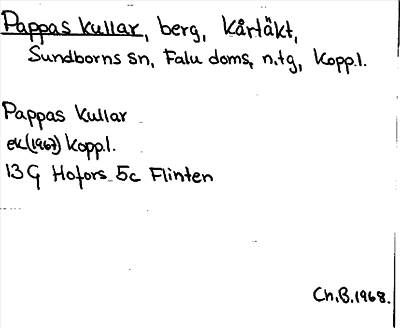 Pappas kullar, berg, Kårtäkt,
Sundborns sn, Falu doms. n.tg, Kopp.l.
Pappas Kullar
ek(1967) Kopp.l.
13G Hofors 5c Flinten
Ch.B.1968.